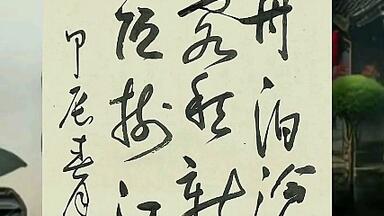 舟泊
客愁新
低树江
甲辰春月